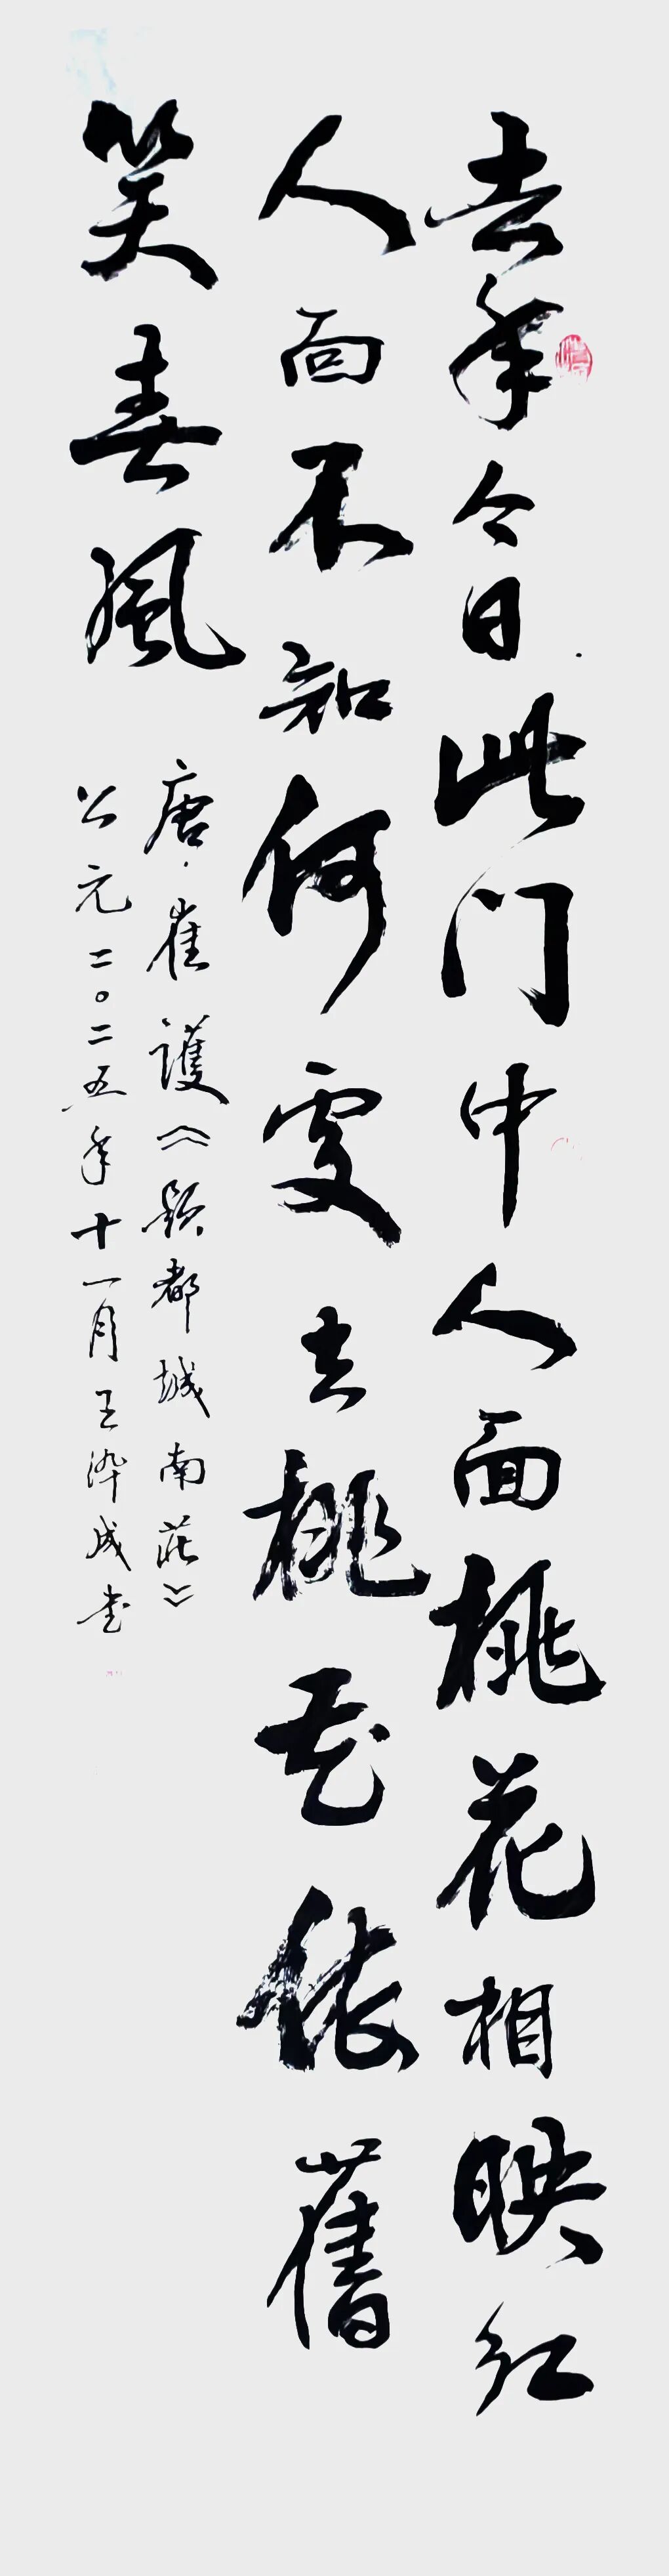 去年今日此门中人面桃花相映红
人面不知何处去桃花依舊
笑春風
唐·崔護《题都城南莊》
公元二〇二五年十一月王泽成书